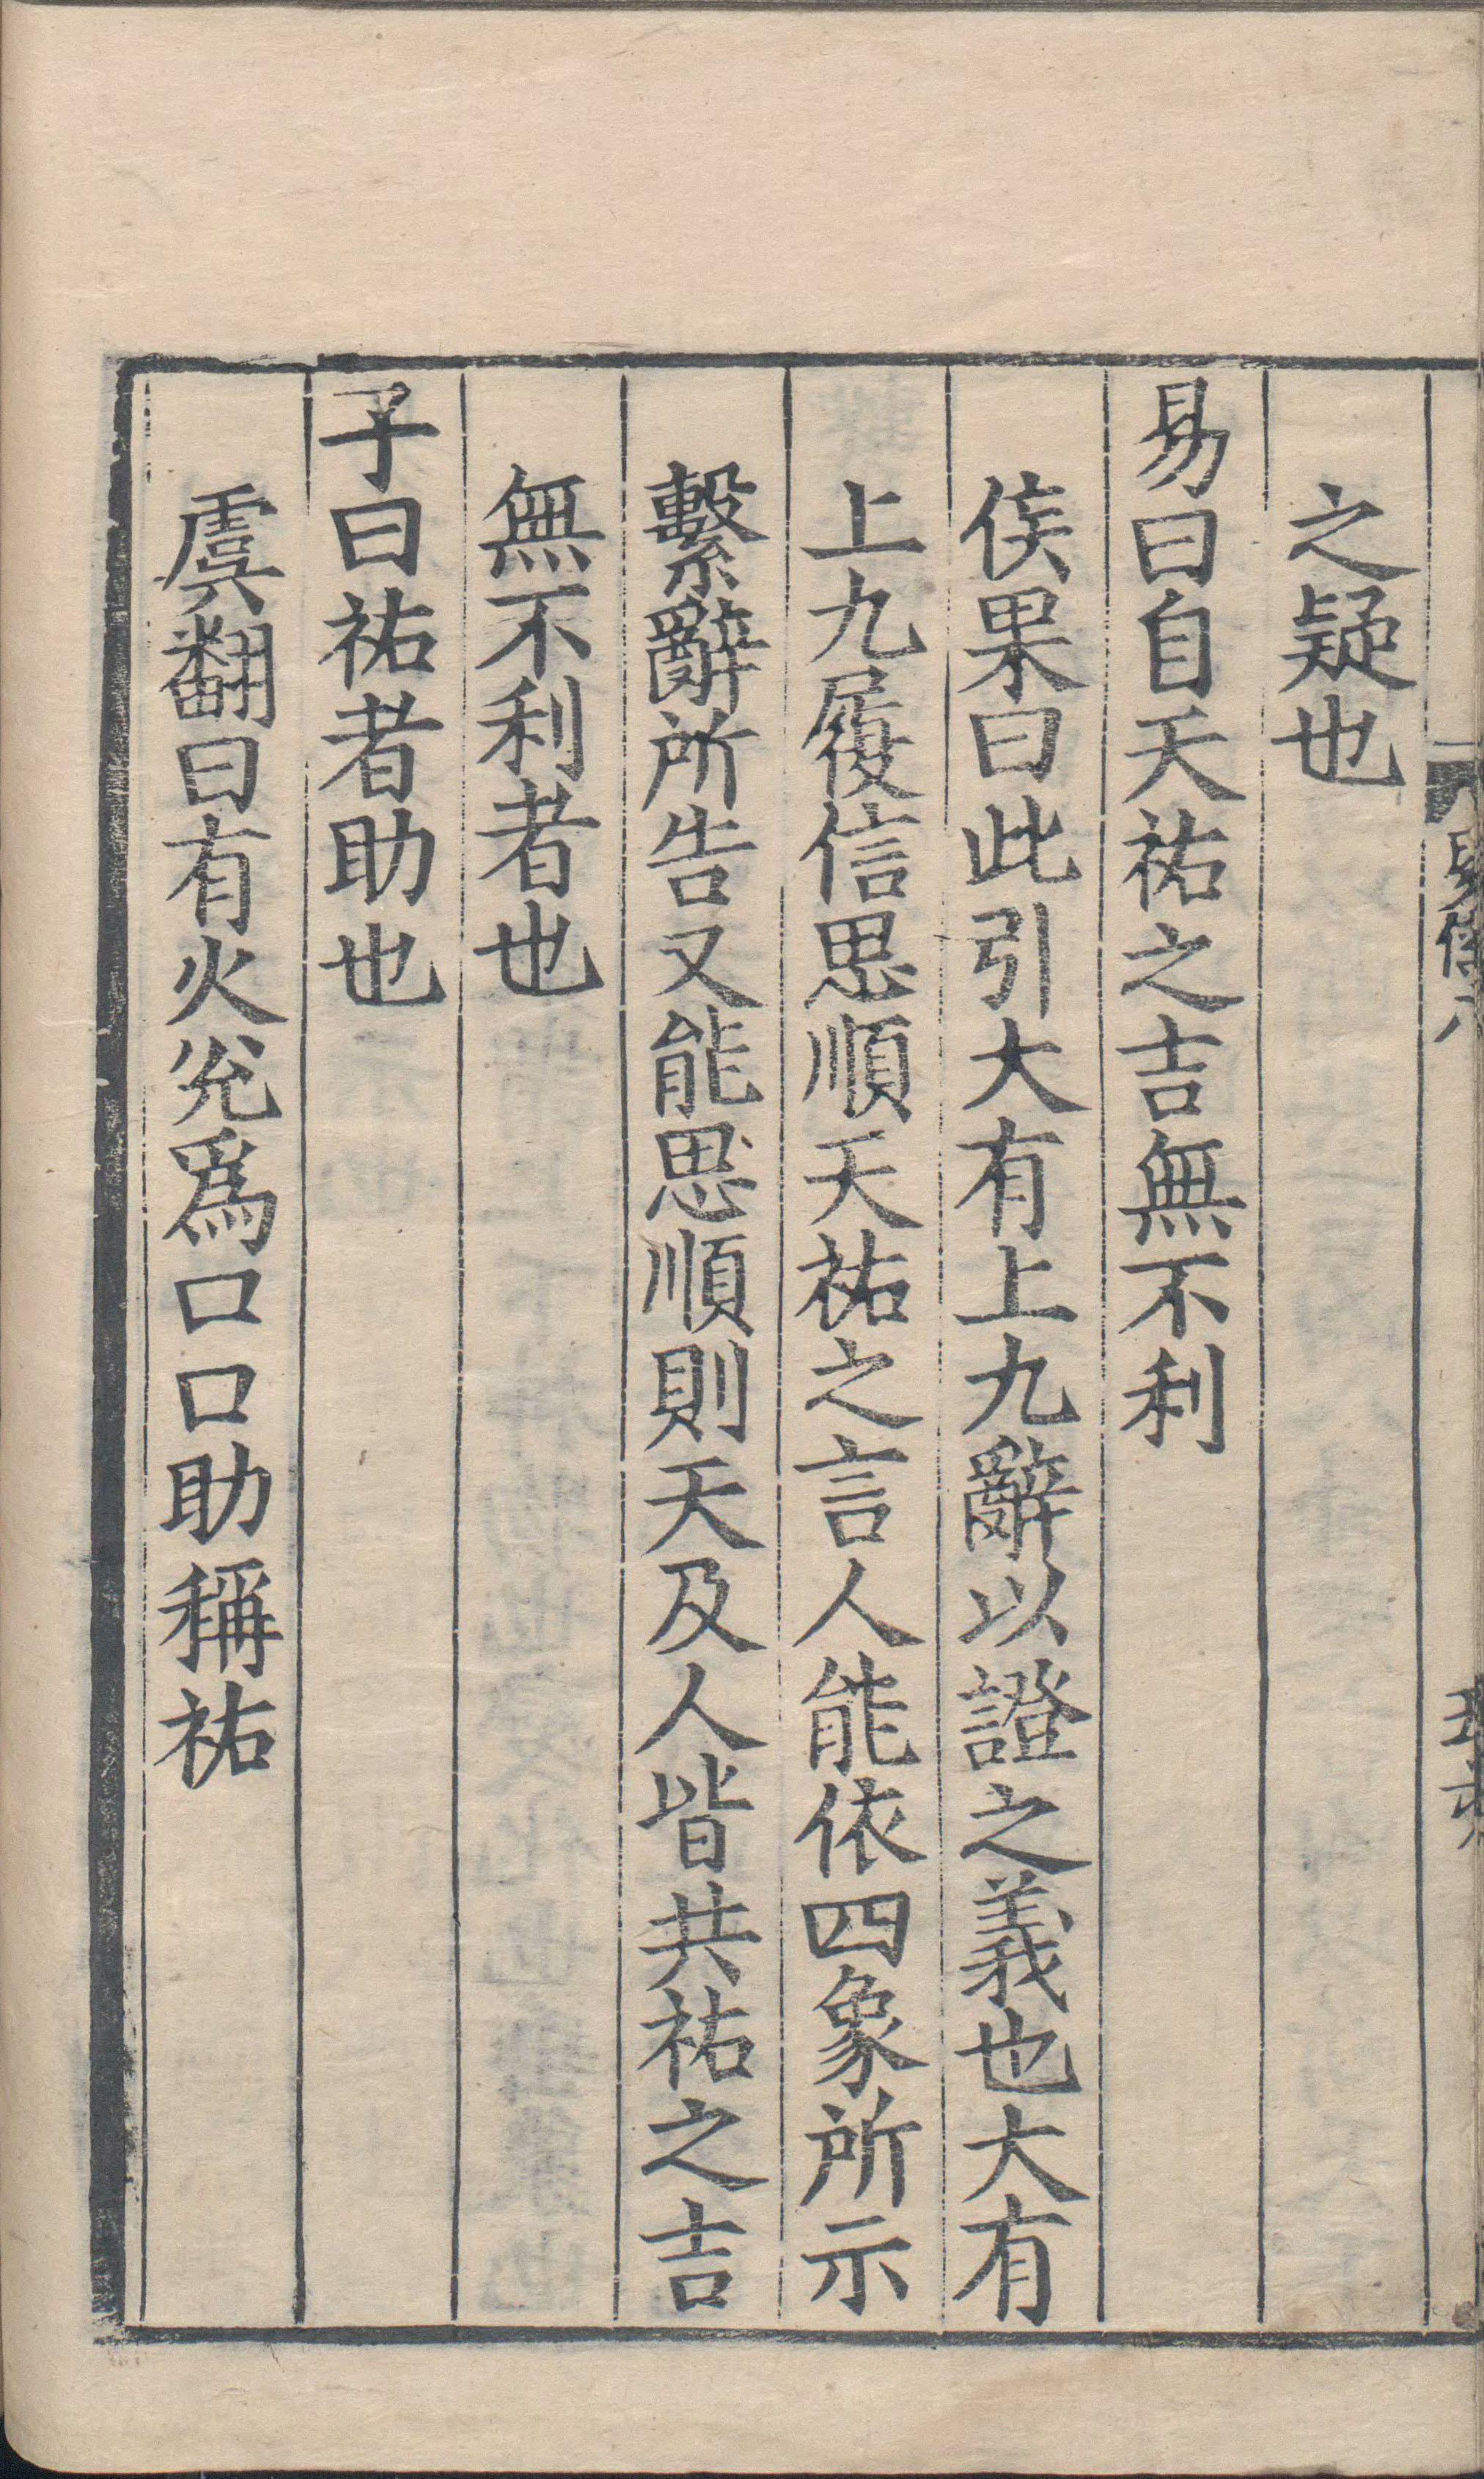 之疑也
易曰自天祐之吉無不利
侯果曰此引大有上九辭以證之義也大有
上九履信思順天祐之言人能依四象所示
繫辭所告又能思順則天及人皆共祐之吉
無不利者也
子曰祐者助也
虞翻曰有火兊爲口口助稱祐